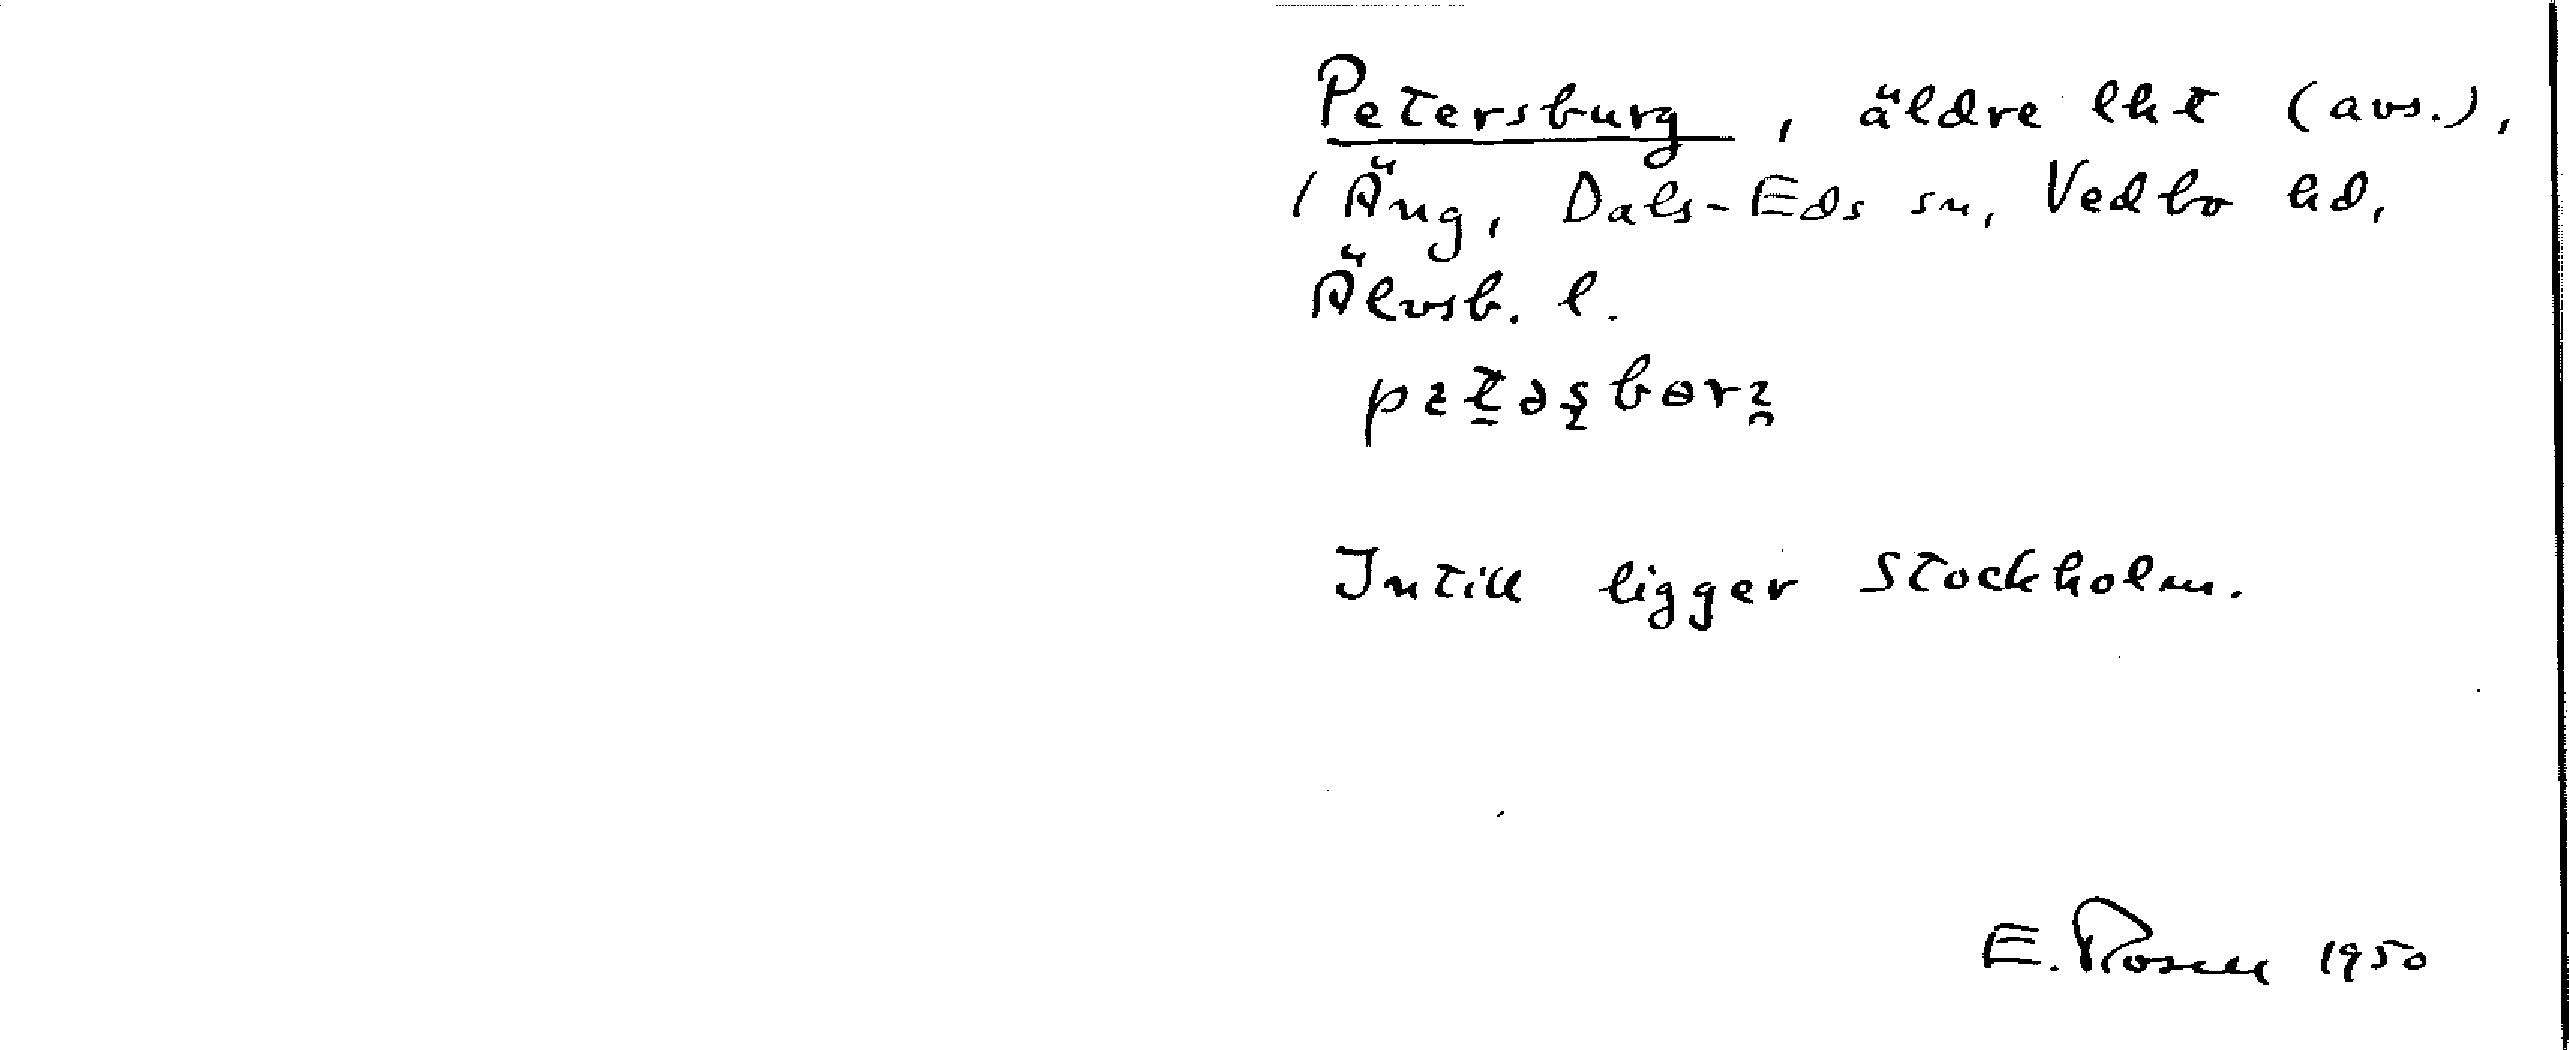 Petersburg, äldre lht (avs.),
/ Äng, Dals-Eds sn, Vedbo hd,
Älvsb. l.
Intill ligger Stockholm.
E. Rosell 1950